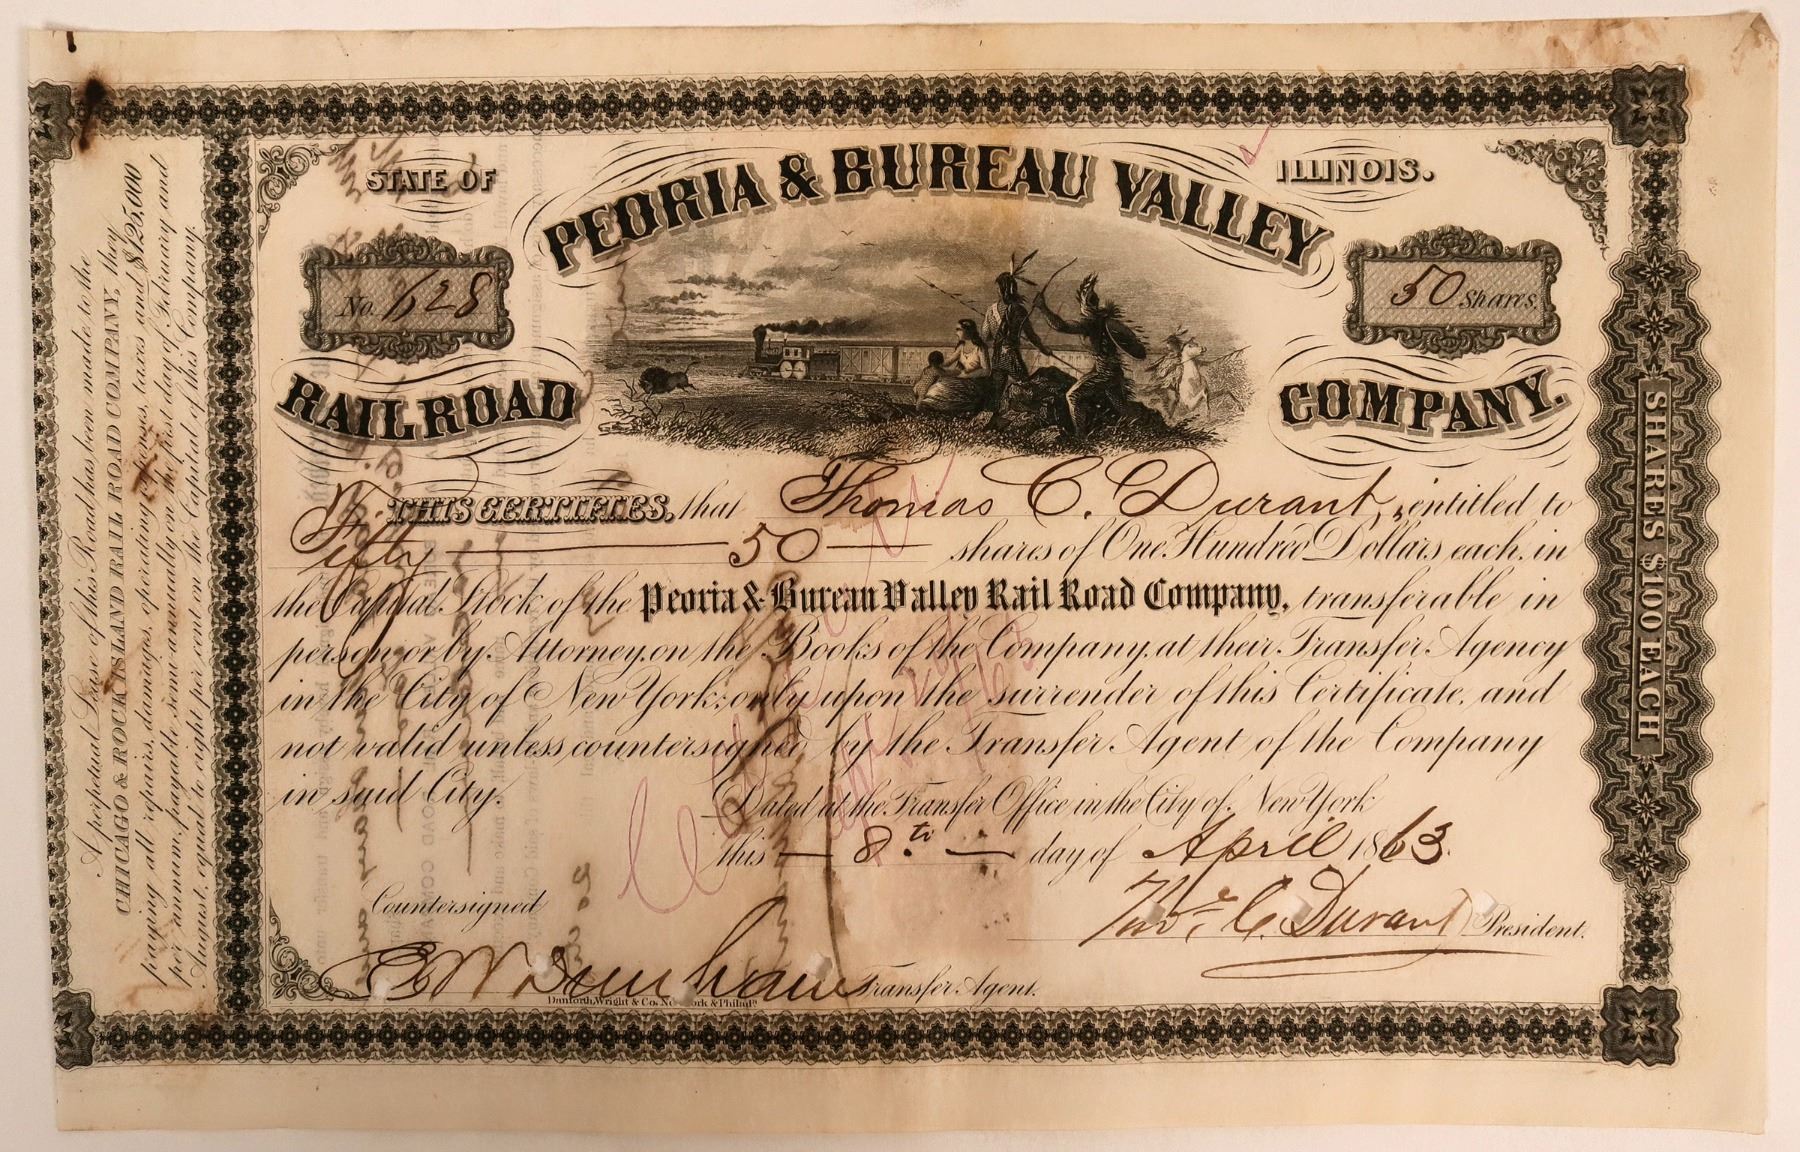 STATE OF
ILLINOIS.
PEORIA & BUREAU VALLEY
RAILROAD COMPANY.
No. 628
50 Shares
THIS CERTIFIES, that Thomas C. Durant, is entitled to
Fifty — 50 — shares of One Hundred Dollars each, in
the Capital Stock of the Peoria & Bureau Valley Rail Road Company, transferable in
person or by Attorney, on the Books of the Company, at their Transfer Agency
in the City of New York; only upon the surrender of this Certificate, and
not valid unless countersigned by the Transfer Agent of the Company
in said City.
Dated at the Transfer Office in the City of New York
this — 8th — day of April 1863.
Countersigned
Thos. C. Durant President.
E W Dunham Transfer Agent.
Danforth, Wright & Co. New York & Philada
A perpetual Lease of this Road has been made to the
CHICAGO & ROCK ISLAND RAIL ROAD COMPANY, they
paying all repairs, damages, operating expenses, taxes and $125,000
per annum, payable semi-annually on the first day of February and
August, equal to eight per cent on the Capital of this Company.
SHARES $100 EACH